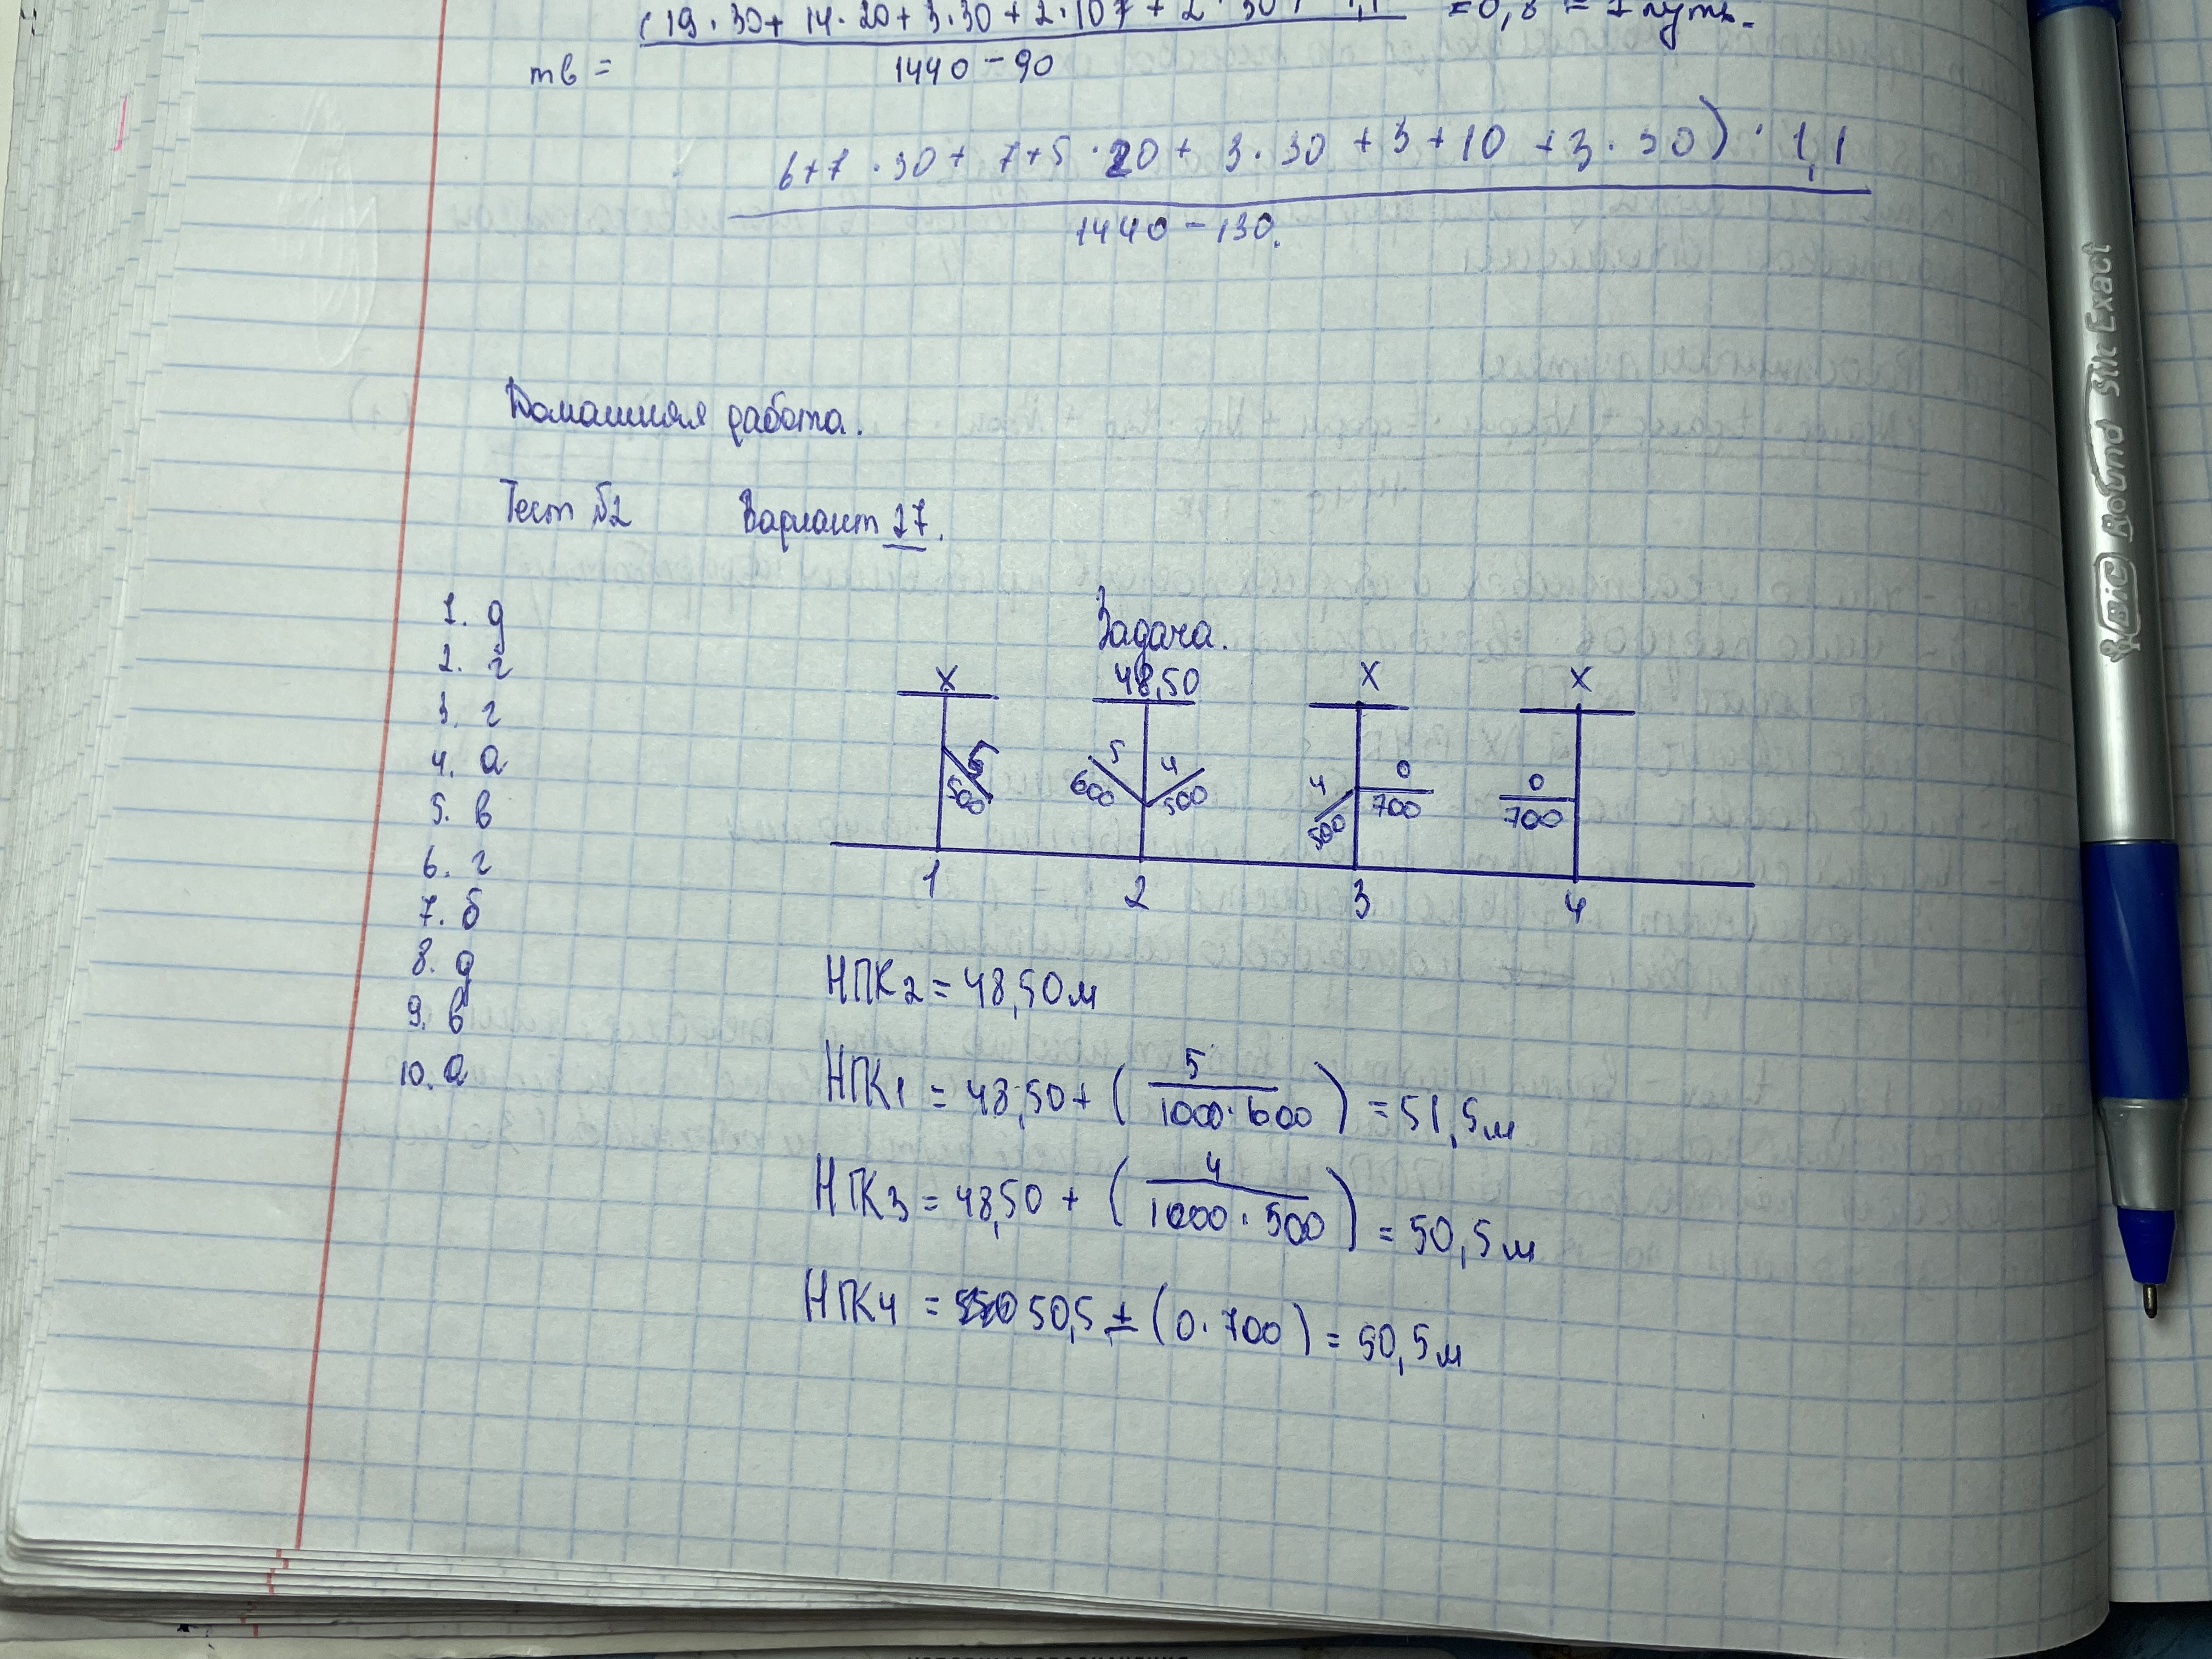 (19·30+ 14·20+3·30+2·107+2·30) · 1,1 =0,8 = 1 путь.
mв = 1440-90
6+7·30+ 7+5·20+ 3·30 +3+10 +3·30) · 1,1
1440-130.
Домашняя работа.
Тест №2 Вариант 27.
Задача.
1. д
2. г
3. г
4. а
5. в
6. г
7. б
8. д
9. в
10. а
X 48,50 X X
5 500 5 600 4 500 4 500 0 700 0 700
1 2 3 4
НПК2=48,50м
НПК1 = 48,50+ ( 5 / 1000·600 ) =51,5м
НПК3 =48,50 + ( 4 / 1000·500 ) = 50,5м
НПК4 = 50,5 ± (0·700) = 50,5м
BIC Round Stic Exact